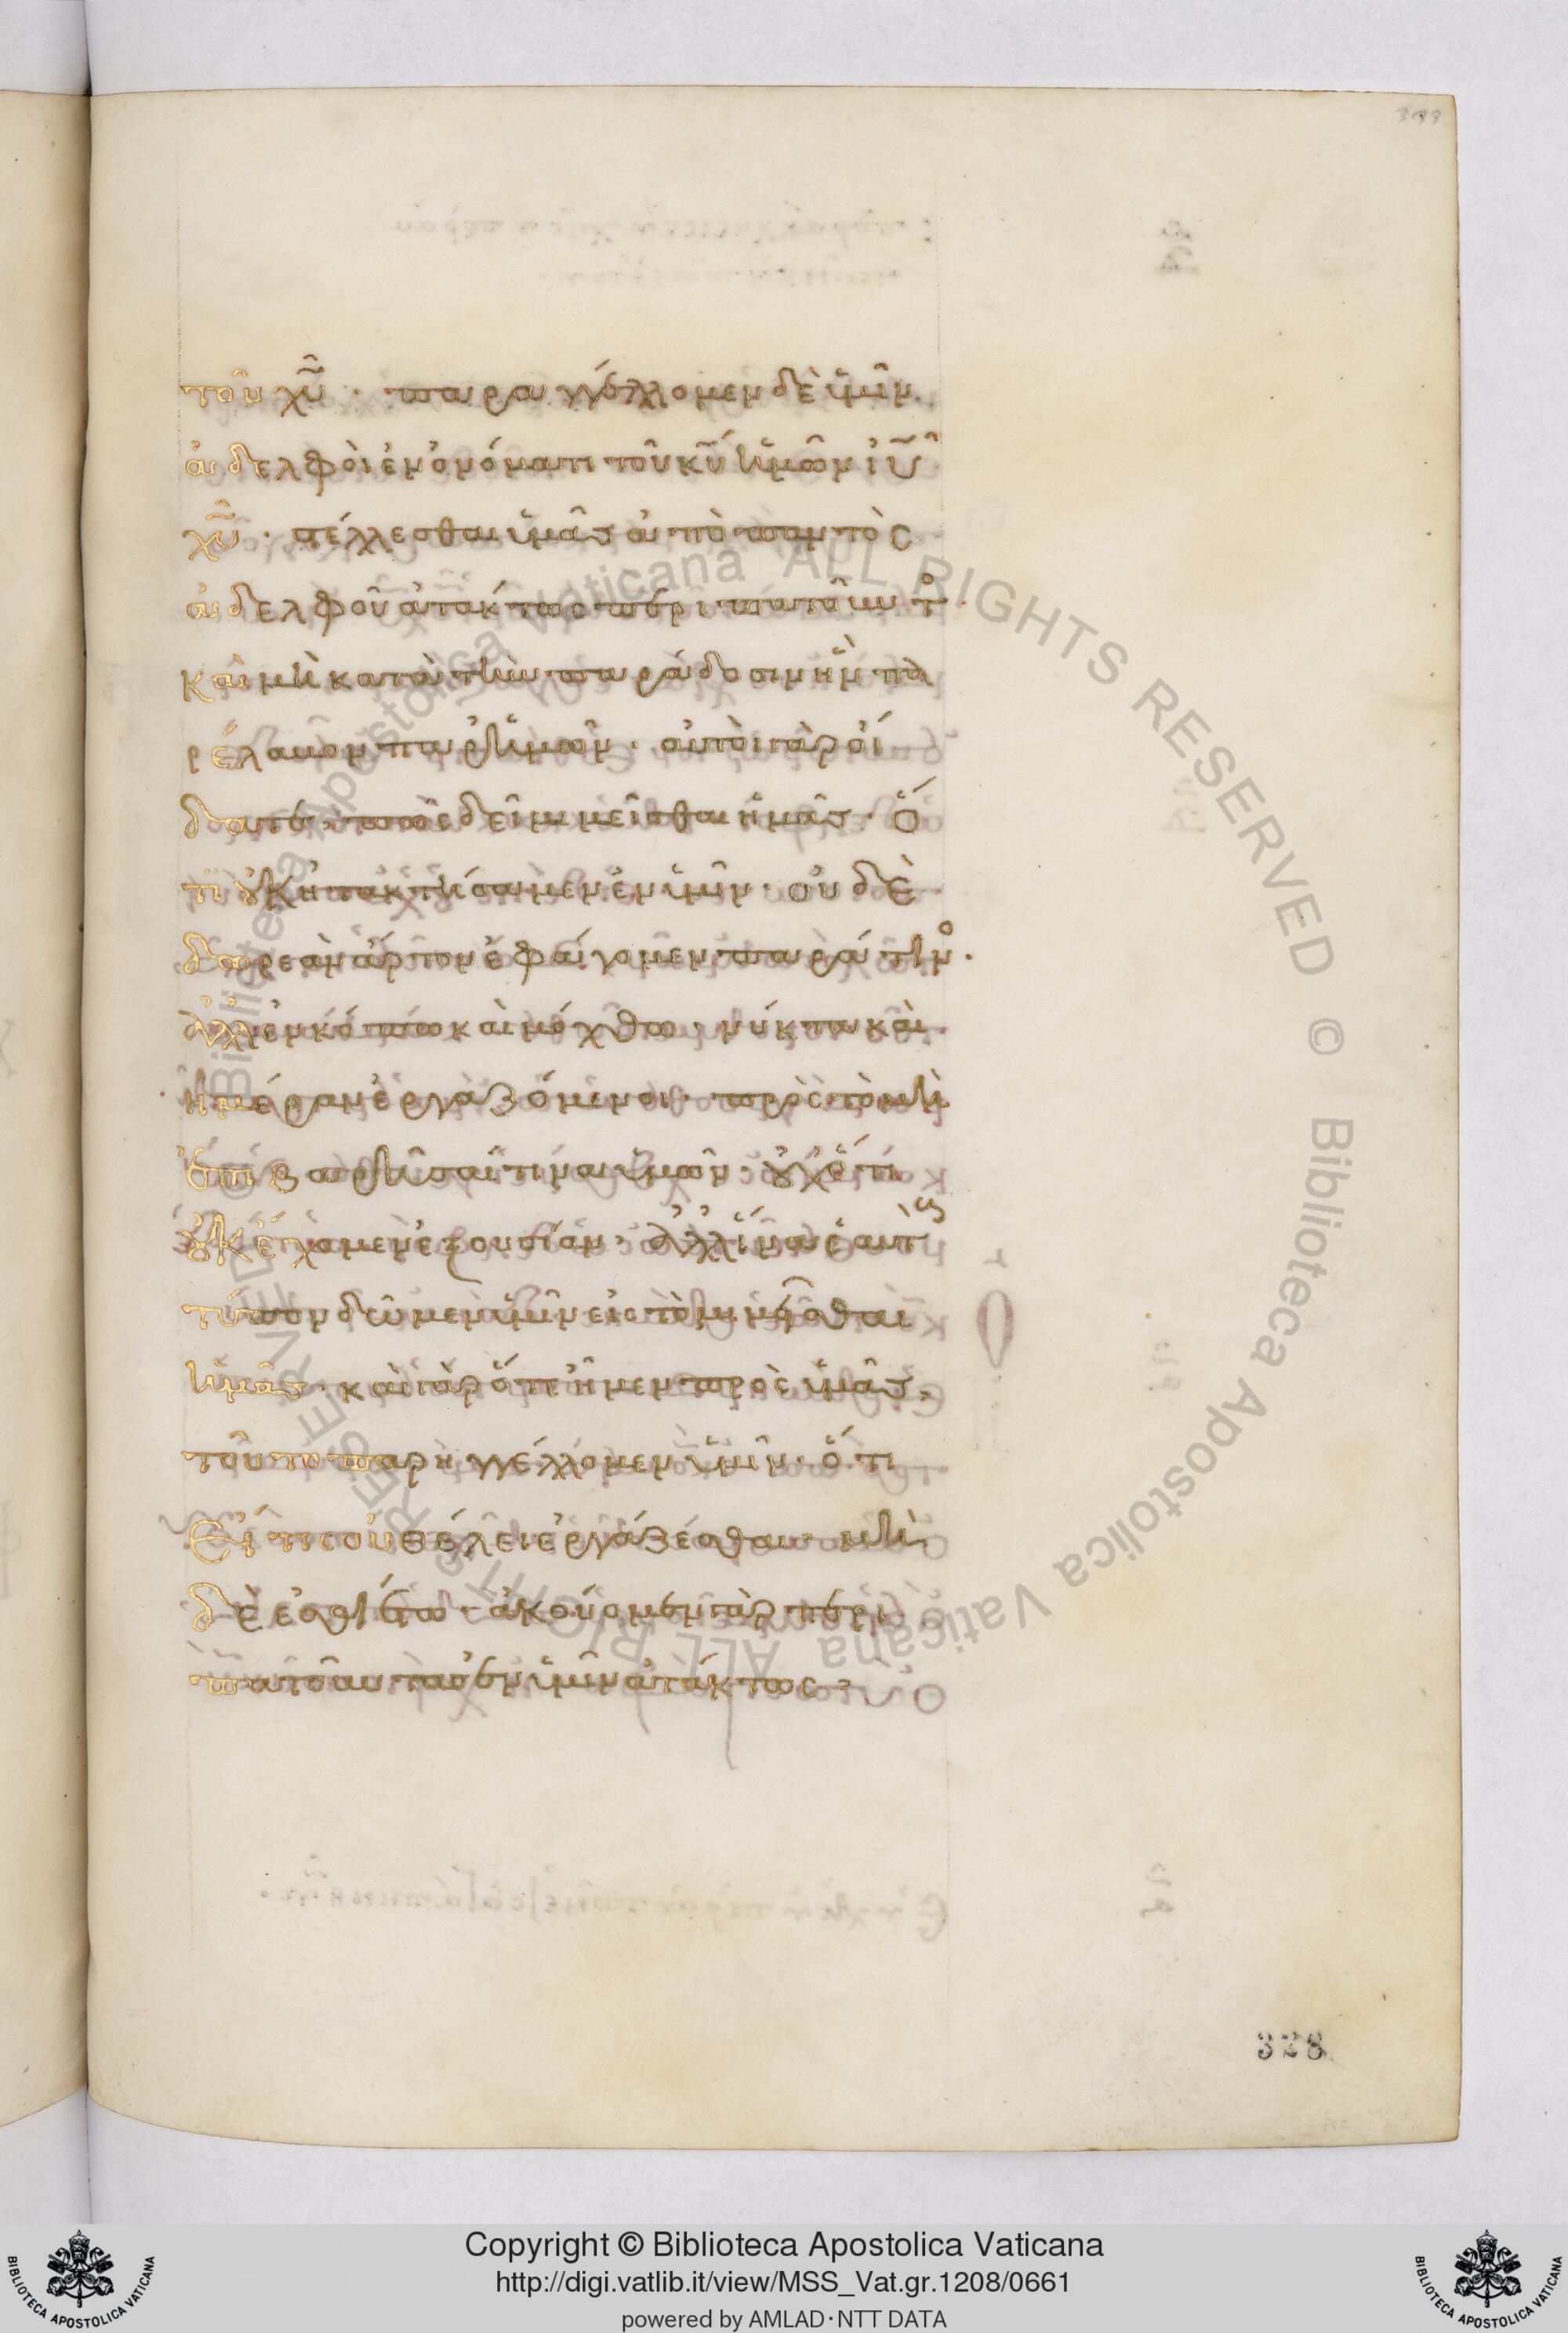 399
τοῦ χῦ · παραγγέλλομεν δὲ ὑμῖν
ἀδελφοὶ ἐν ὀνόματι τοῦ κῦ ἡμῶν ἰῦ
χῦ · στέλλεσθαι ὑμᾶς ἀπὸ παντὸς
ἀδελφοῦ ἀτάκτως περιπατοῦντ
καὶ μὴ κατὰ τὴν παράδοσιν ἣν πα
ρέλαβον παρ ἡμῶν · αὐτοὶ γὰρ οἴ
δατε πῶς δεῖ μιμεῖσθαι ἡμᾶς · ὅ
τι οὐκ ἠτακτήσαμεν ἐν ὑμῖν · οὐδὲ
δωρεὰν ἄρτον ἐφάγομεν παρά τιν ·
ἀλλ ἐν κόπω καὶ μόχθω · νύκτα καὶ
ἡμέραν ἐργαζόμενοι · πρὸς τὸ μὴ
ἐπιβαρῆσαί τινα ὑμῶν · οὐχ ὅτι
οὐκ ἔχομεν ἐξουσίαν · ἀλλ ἵνα ἑαυτ
τύπον δῶμεν ὑμῖν εἰς τὸ μιμεῖσθαι
ἡμᾶς · καὶ γὰρ ὅτε ἦμεν πρὸς ὑμᾶς ·
τοῦτο παρηγγέλλομεν ὑμῖν · ὅτι
Εἴ τις οὐ θέλει ἐργάζεσθαι · μὴ
δὲ ἐσθιέτω · ἀκούομεν γὰρ περι
πατοῦντας ἐν ὑμῖν ἀτάκτως ·
328
© Biblioteca Apostolica Vaticana ALL RIGHTS RESERVED © Biblioteca Apostolica Vaticana ALL RIGHTS RESERVED
Copyright © Biblioteca Apostolica Vaticana
http://digi.vatlib.it/view/MSS_Vat.gr.1208/0661
powered by AMLAD·NTT DATA
BIBLIOTECA APOSTOLICA VATICANA
BIBLIOTECA APOSTOLICA VATICANA